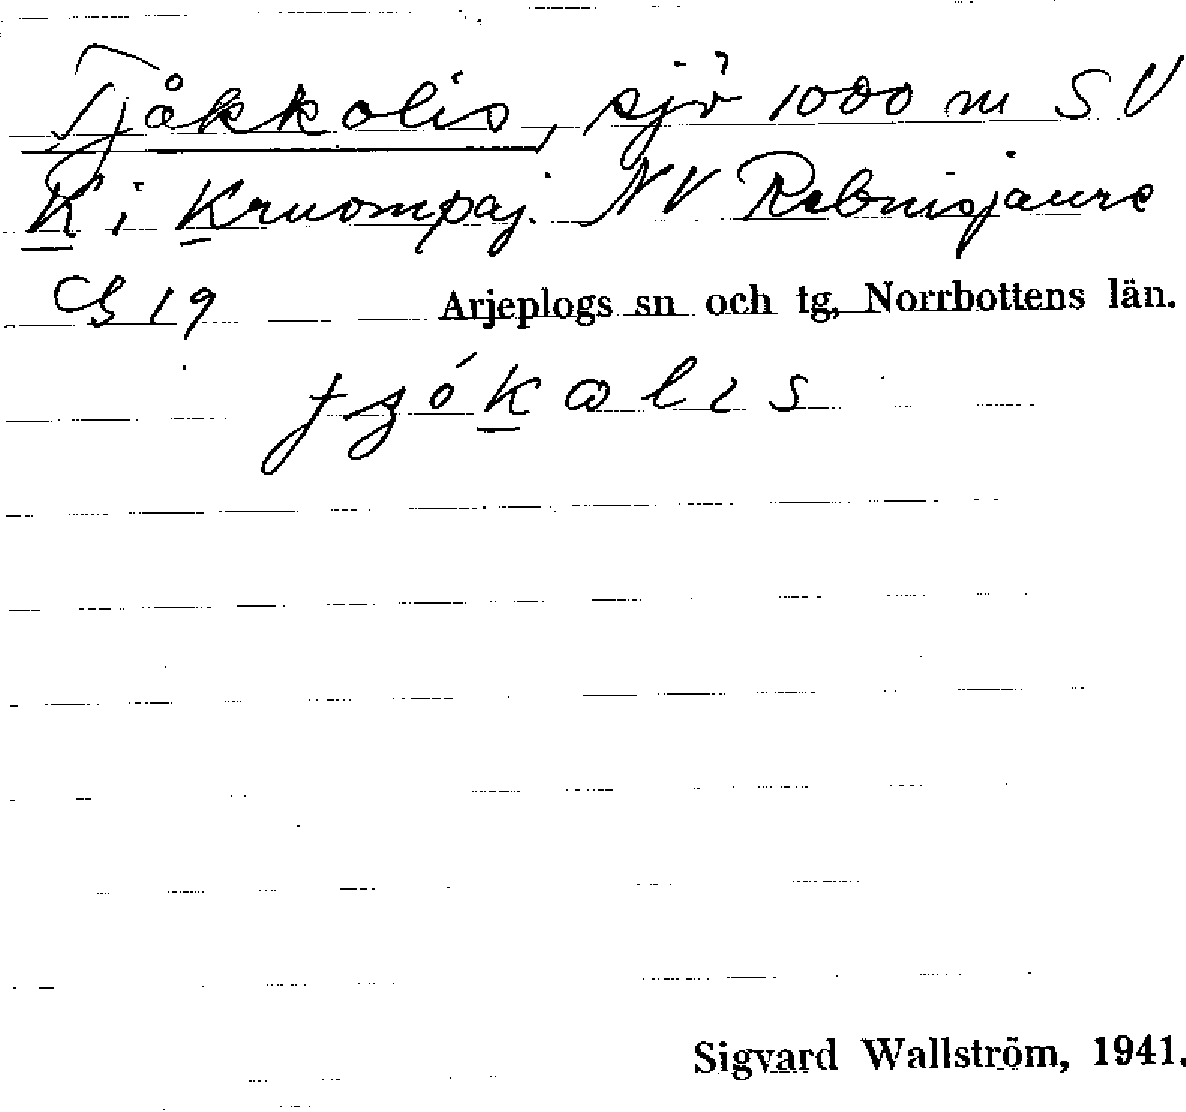 Tjåkkolis, sjö 1000 m SV
K i Kruompaj. NV Rebnisjaure
C§ 19 Arjeplogs sn och tg, Norrbottens län.
tʒókɷlis
Sigvard Wallström, 1941.